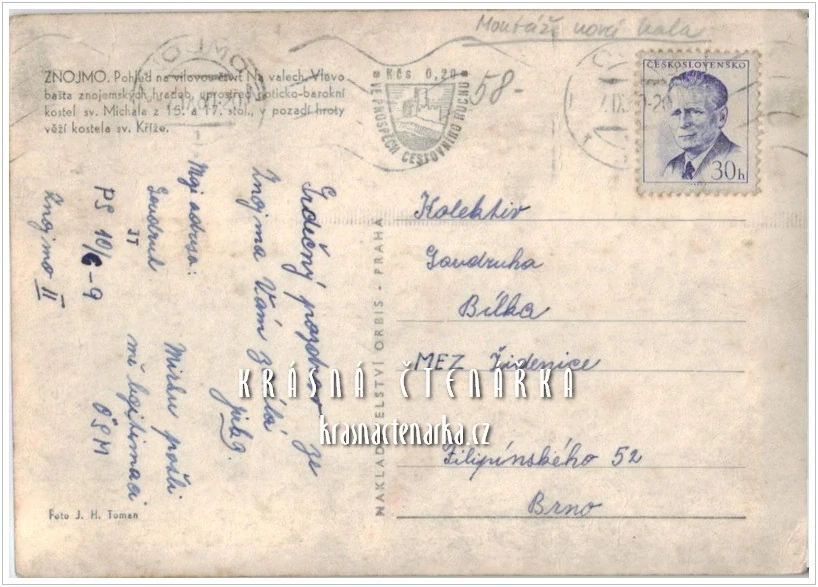 Montáž nová hala
ZNOJMO. Pohled na vilovou čtvrť Na valech. Vlevo
bašta znojemských hradeb, uprostřed goticko-barokní
kostel sv. Michala z 15. a 17. stol., v pozadí hroty
věží kostela sv. Kříže.
ZNOJMO
Kčs 0,20
VE PROSPĚCH CESTOVNÍHO RUCHU
58-
ČESKOSLOVENSKO
30h
Srdečný pozdrav ze
Znojma Vám zasílá
Moje adresa:
Soudruh
PS 10/6-9
Znojmo II
Mirku pošli
mi legitimaci
ČSM
NAKLADATELSTVÍ ORBIS - PRAHA
Kolektiv
Soudruha
Bílka
MEZ Židenice
Filipínského 52
Brno
KRÁSNÁ ČTENÁŘKA
krasnactenarka.cz
Foto J. H. Toman